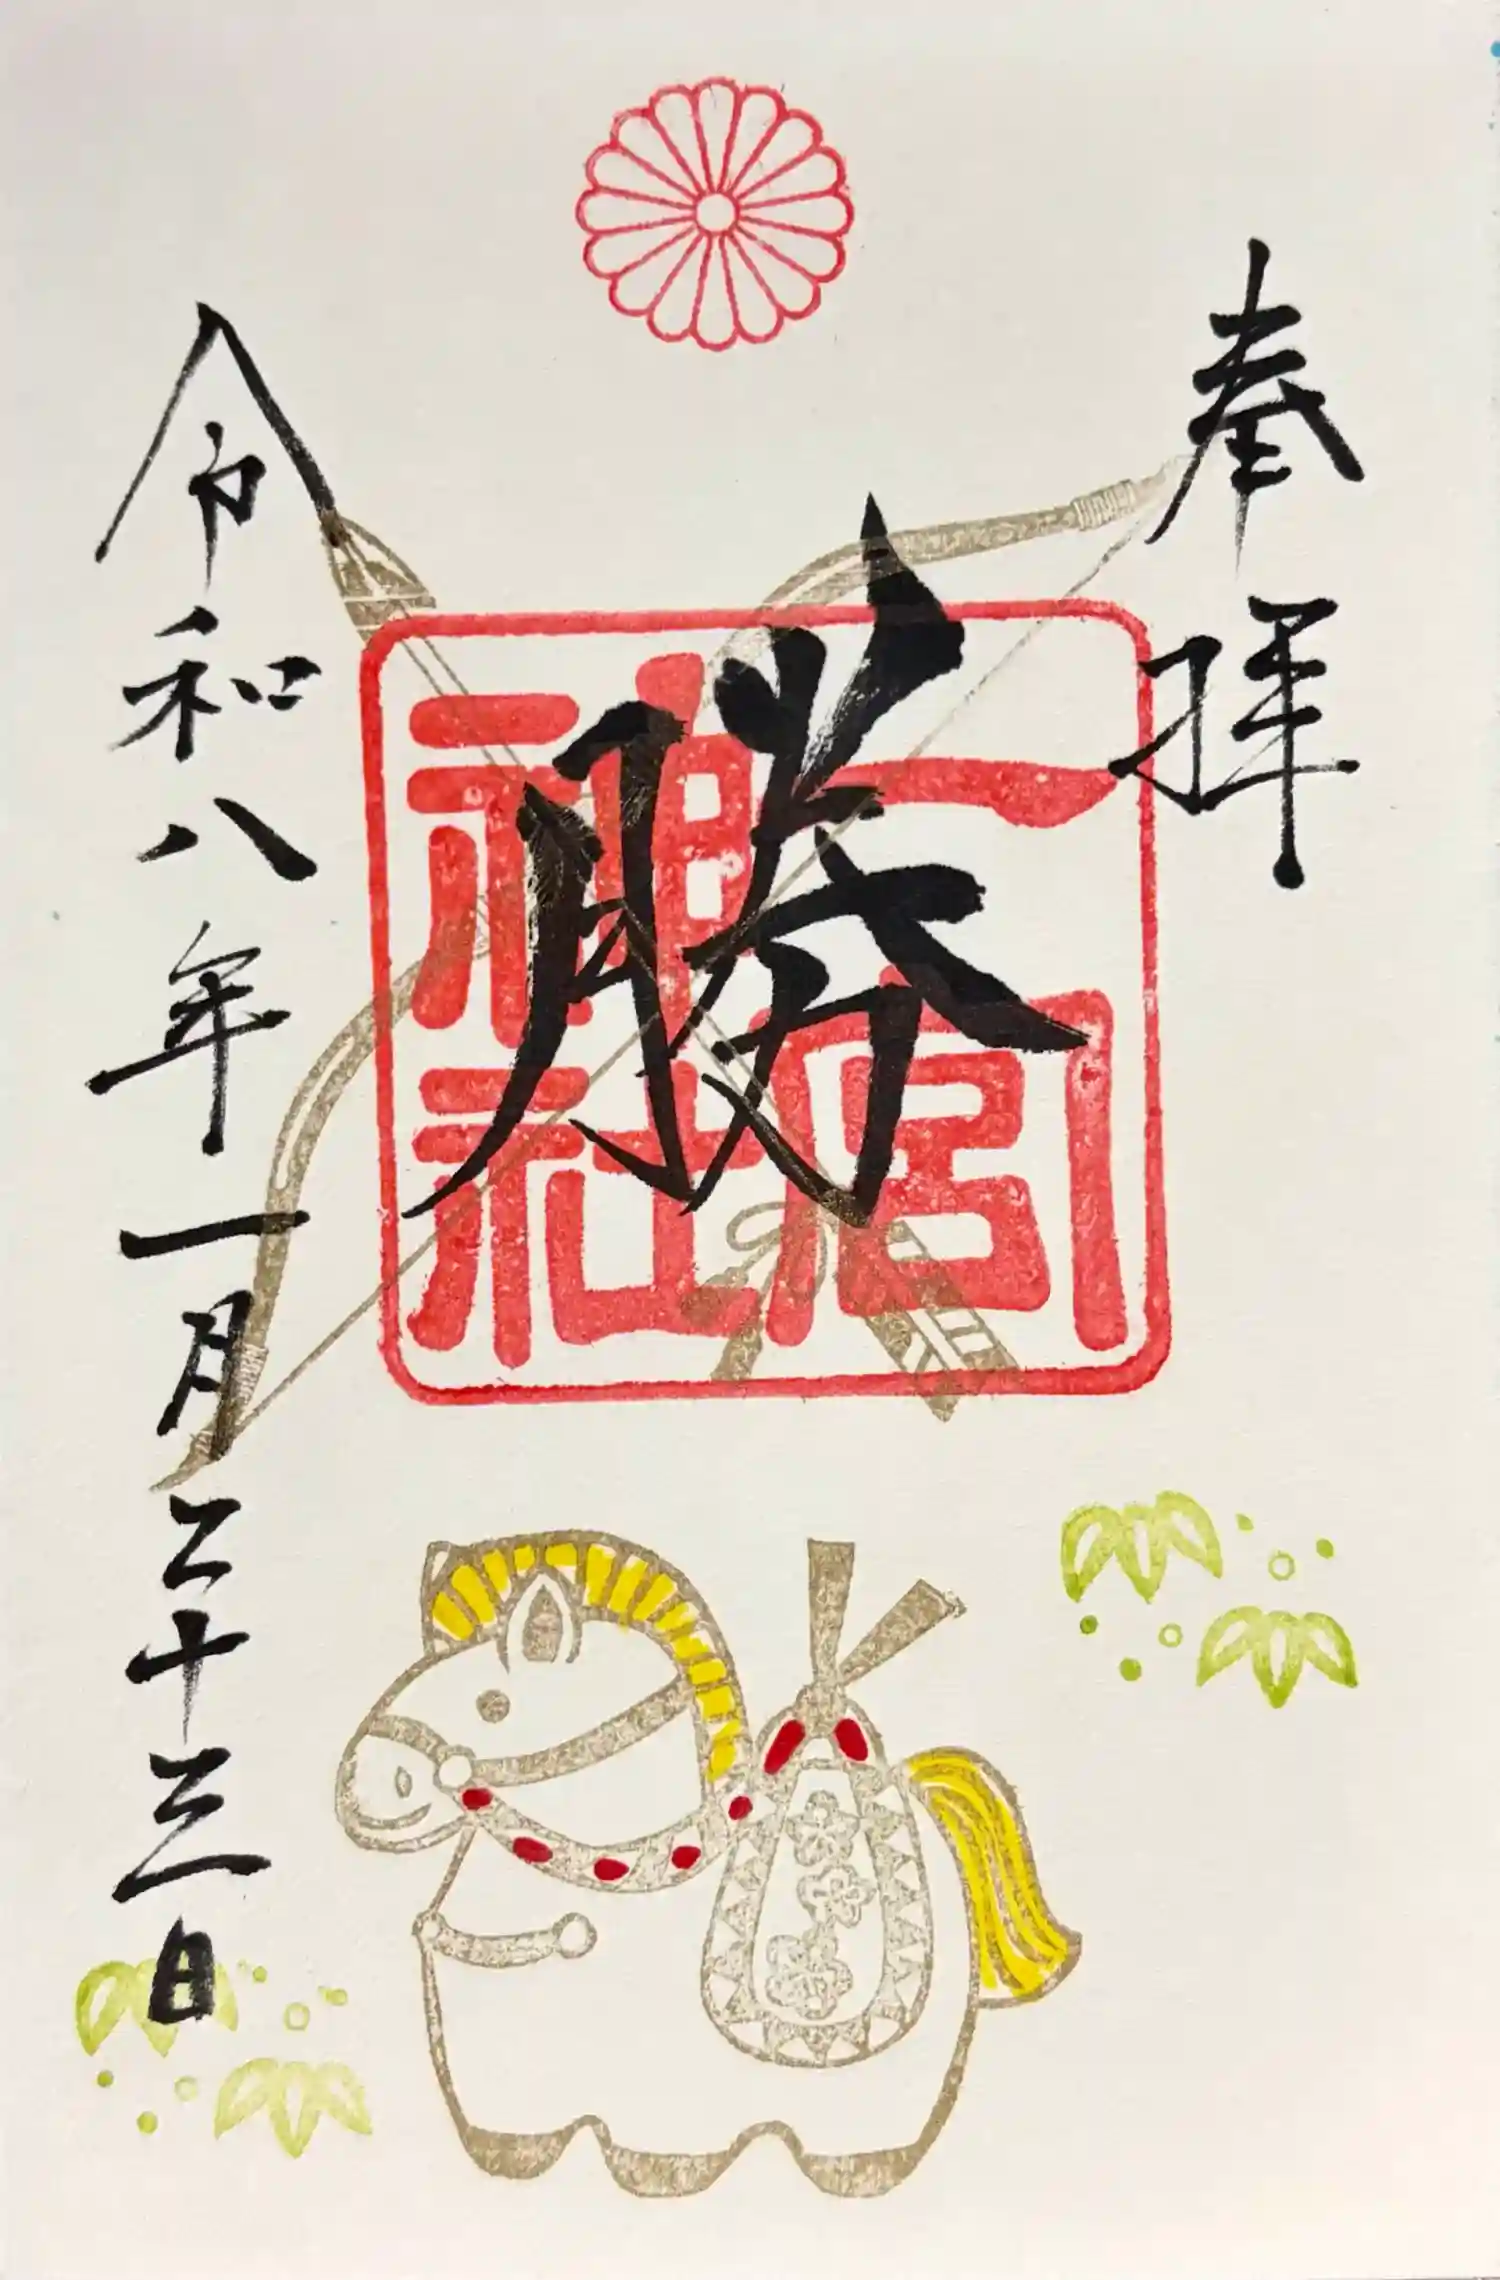 奉拝
一宮
神社
勝
令和八年一月二十三日